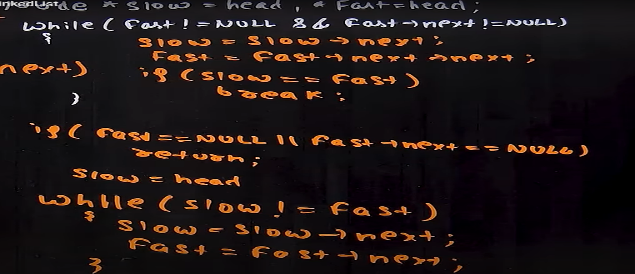 inkedList
de * slow = head, * Fast = head;
while ( Fast != NULL && Fast→next != NULL)
{
slow = slow → next;
Fast = Fast → next → next;
next)
if (slow == fast)
break;
}
if ( Fast == NULL || Fast → next == NULL)
return;
slow = head
while ( slow != fast)
{
slow = slow → next;
Fast = Fast → next;
}